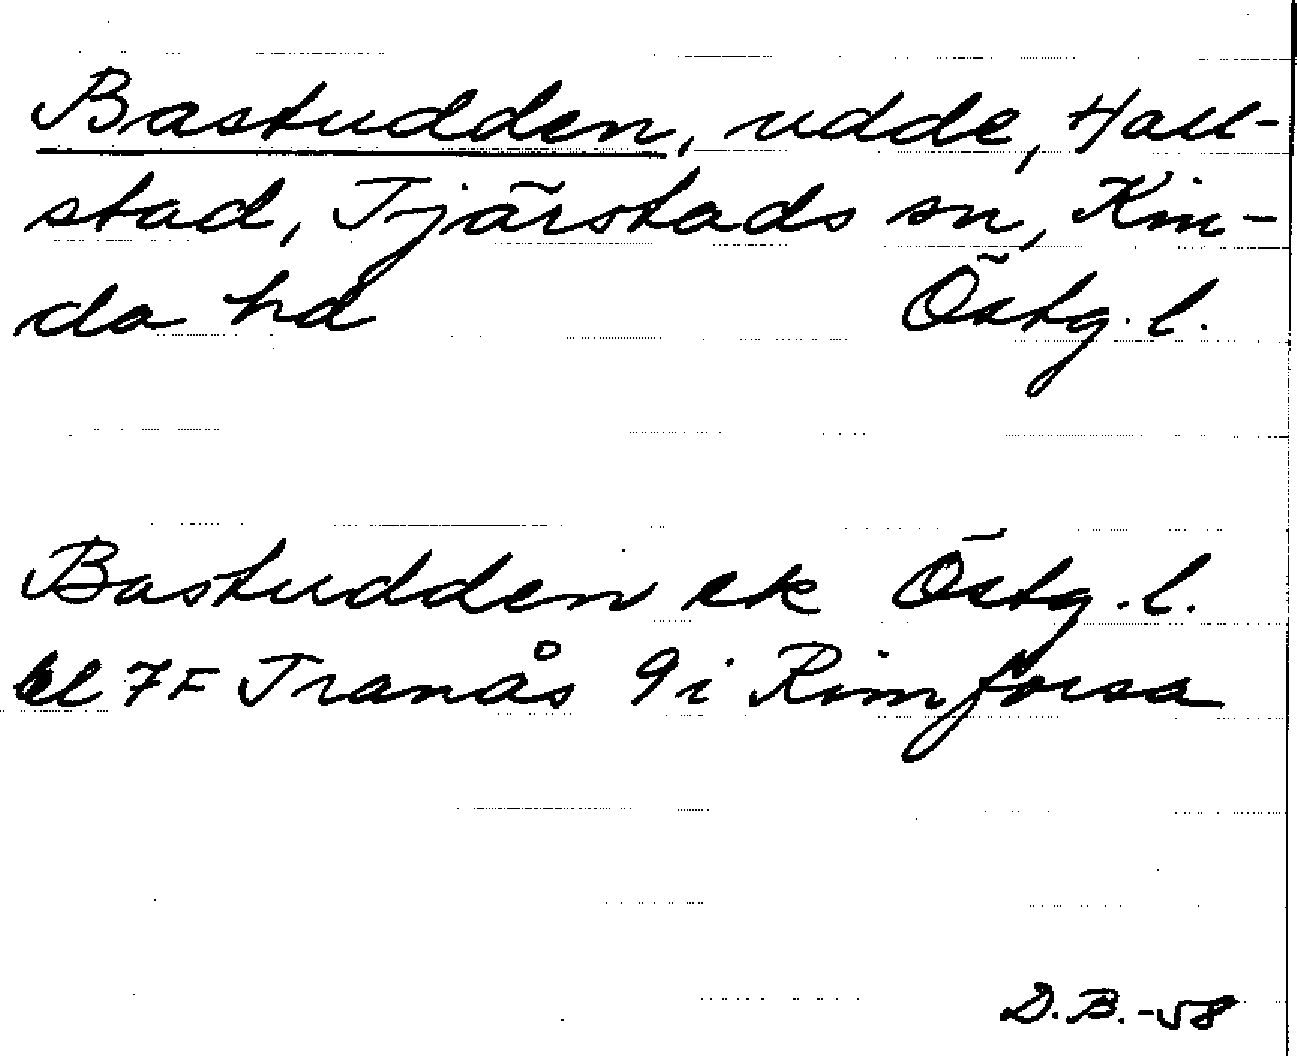 Bastudden, udde, Hall-
stad, Tjärstads sn, Kin-
da hd Östg. l.
Bastudden ek Östg. l.
bl 7F Tranås 9i Rimforsa
D.B.-58